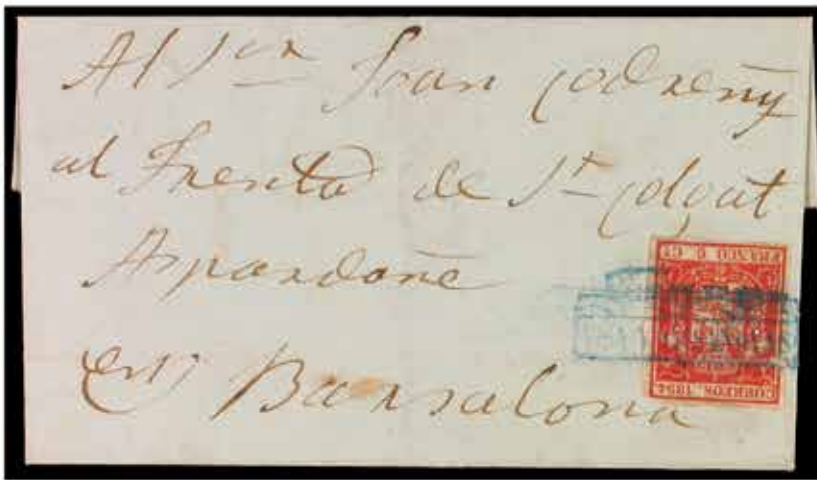 Al Sor Joan Codreny
al Frenta de St Colgat
Aspardoñe
en Barsalona
FRANCO 6 Cs
CORREOS. 1854